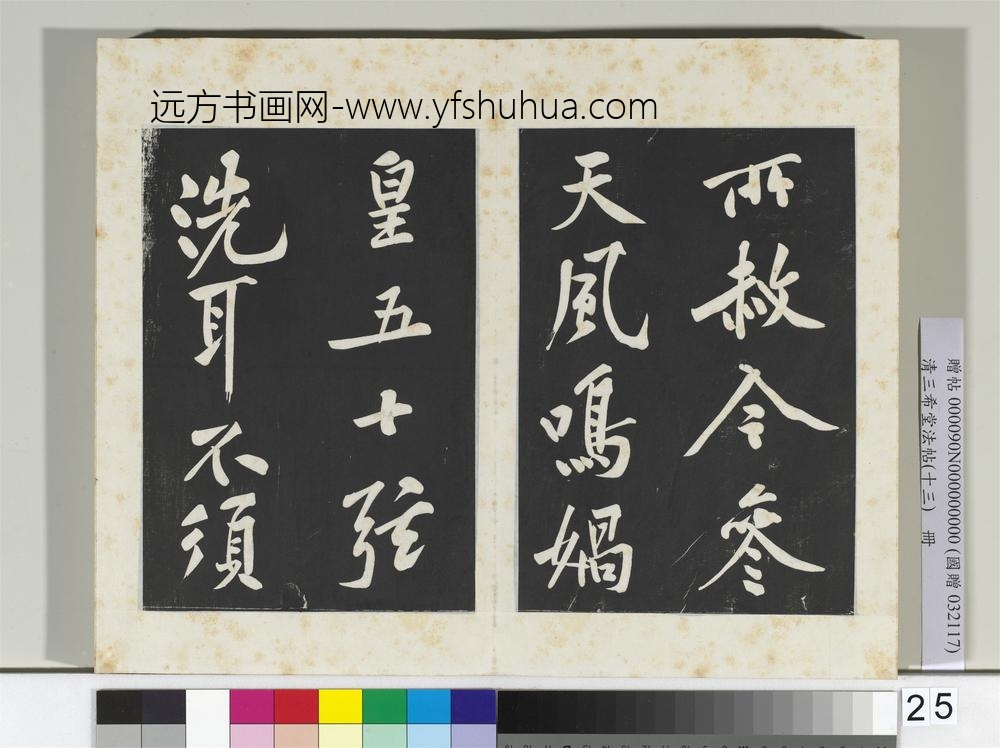 远方书画网-www.yfshuhua.com
所赦今參
天風鳴媧
皇五十弦
洗耳不須
贈帖 000090N000000000 (國贈 032117)
清三希堂法帖(十三) 冊
25